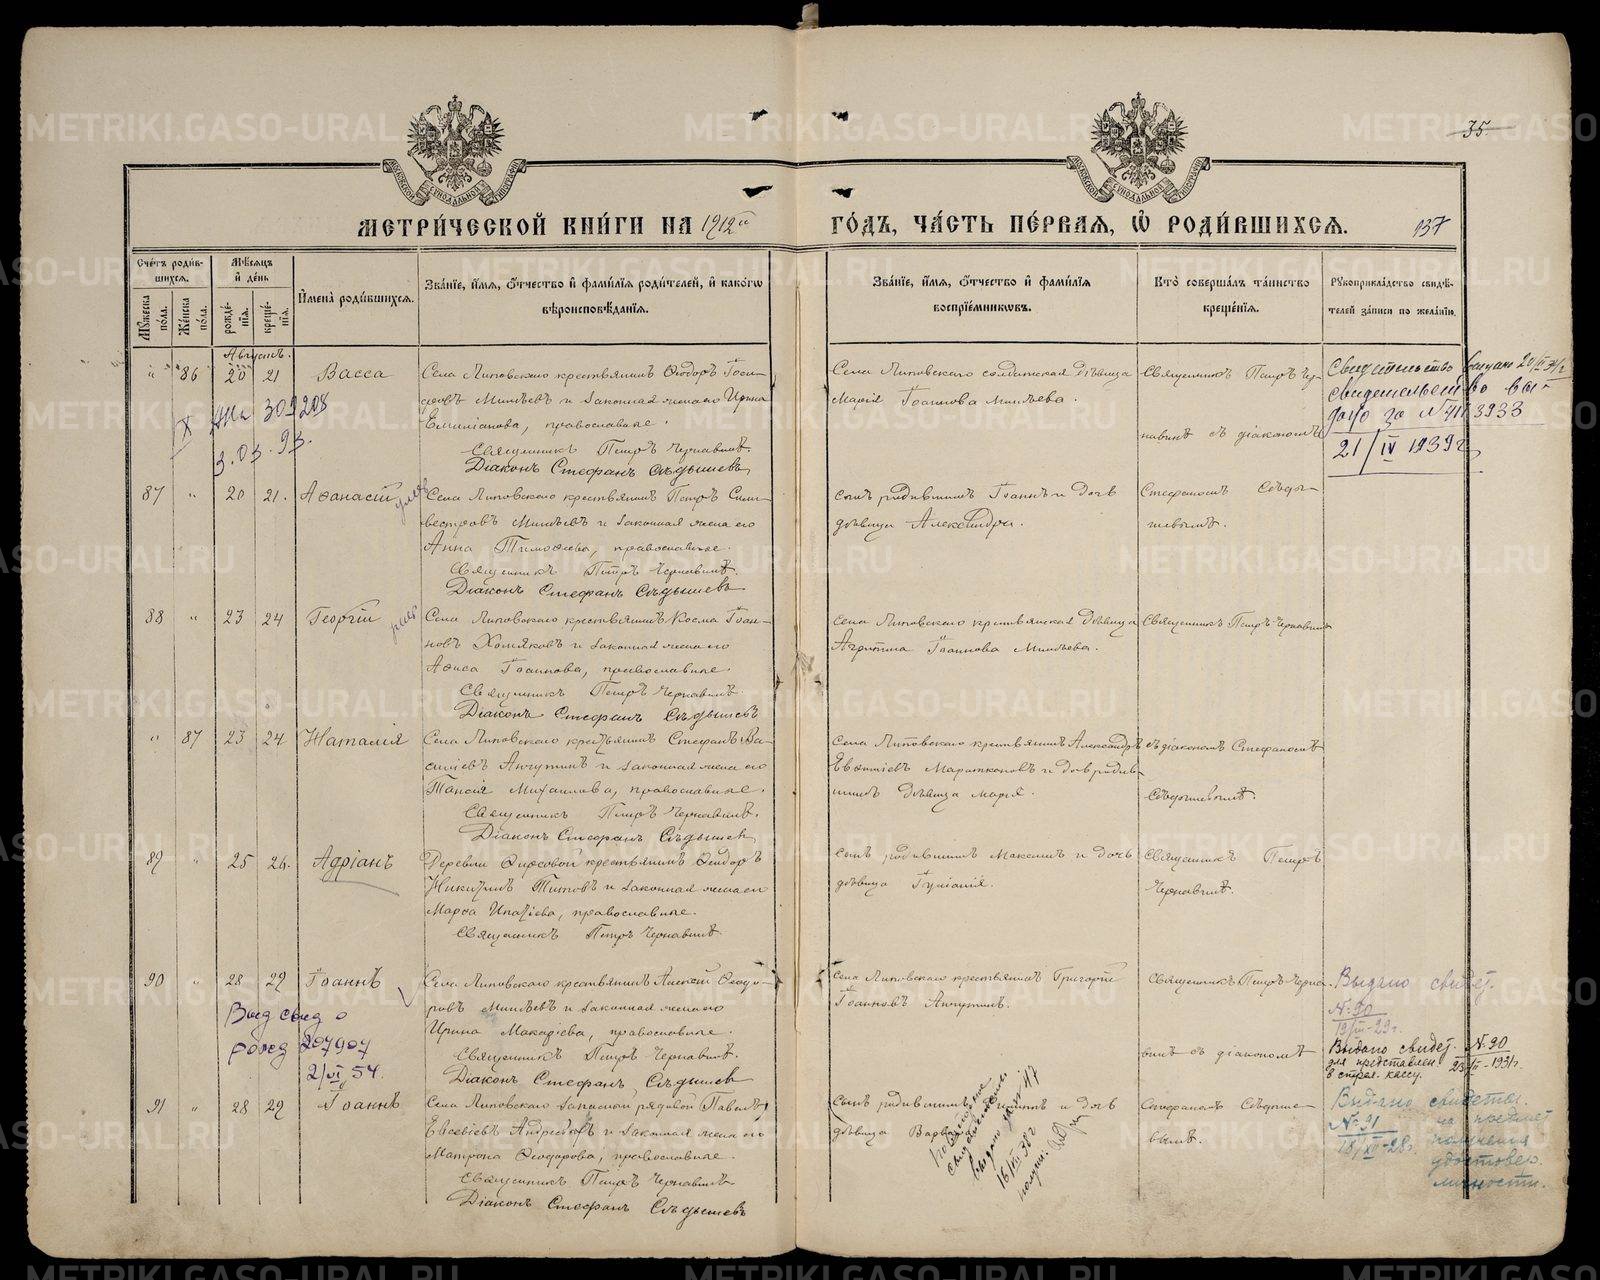 35.
МОСКОВСКОЙ СѴНОДАЛЬНОЙ ТИПОГРАФІИ
МОСКОВСКОЙ СѴНОДАЛЬНОЙ ТИПОГРАФІИ
МЕТРИ́ЧЕСКОЙ КНИ́ГИ НА 1912й
ГО́ДЪ, ЧА́СТЬ ПЕ́РВАЯ, Ѡ҆ РОДИ́ВШИХСЯ. 137
Сче́тъ роди́в-
шихся.
Му́жеска
по́ла.
Же́нска
по́ла.
Мѣ́сяцъ
и҆ де́нь
рожде́-
нїя.
креще́-
нїя.
И҆мена̀ роди́вшихся.
Зва́нїе, и҆́мя, ѻ҆́тчество и҆ фами́лїя роди́телей, и҆ како́гѡ
вѣроисповѣ́данїя.
Зва́нїе, и҆́мя, ѻ҆́тчество и҆ фами́лїя
воспрїе́мникѡвъ.
Кто̀ соверша́лъ та́инство
креще́нїя.
Рꙋкоприкла́дство свидѣ́-
телей за́писи по жела́нїю.
Августъ.
" 86 20 21 Васса
Села Липовскаго крестьянинъ Ѳеодоръ Іоси-
фовъ Минѣевъ и законная жена его Ирина
Емиліанова, православные.
Священникъ Петръ Чернавинъ.
Діаконъ Стефанъ Сѣдышевъ
Села Липовскаго солдатская дѣвица
Марія Іоаннова Минѣева.
Священникъ Петръ Чер-
навинъ съ діакономъ
Свидѣтельство выдано
свидетельство вы-
дано за № 4113933
21/IV 1939 г.
309208
3.03.93.
87 " 20 21. Аѳанасій
умер
Села Липовскаго крестьянинъ Петръ Силь-
вестровъ Минѣевъ и законная жена его
Анна Тимоѳеева, православные.
Священникъ Петръ Чернавинъ.
Діаконъ Стефанъ Сѣдышевъ
сынъ родившимъ Іоаннъ и дочь
дѣвица Александра.
Стефаномъ Сѣды-
шевымъ.
88 " 23 24 Георгій
Села Липовскаго крестьянинъ Косма Іоан-
новъ Хомяковъ и законная жена его
Аѳиса Іоаннова, православные.
Священникъ Петръ Чернавинъ.
Діаконъ Стефанъ Сѣдышевъ
села Липовскаго крестьянская дѣвица
Агриппина Іоаннова Минѣева.
Священникъ Петръ Чернавинъ
" 87 23 24 Наталія
Села Липовскаго крестьянинъ Стефанъ Ва-
силіевъ Анчутинъ и законная жена его
Таисія Михаилова, православные.
Священникъ Петръ Чернавинъ.
Діаконъ Стефанъ Сѣдышевъ
села Липовскаго крестьянинъ Александръ
Евѳиміевъ Мартюковъ и дочь родив-
шимъ дѣвица Марія.
съ діакономъ Стефаномъ
Сѣдышевымъ.
89 " 25 26. Адріанъ
Деревни Фирсовой крестьянинъ Ѳеодоръ
Никитинъ Титовъ и законная жена его
Марѳа Ипатіева, православные.
Священникъ Петръ Чернавинъ.
сынъ родившимъ Максимъ и дочь
дѣвица Іуліанія.
Священникъ Петръ
Чернавинъ.
90 " 28 29 Іоаннъ
Села Липовскаго крестьянинъ Алексій Ѳеодо-
ровъ Минѣевъ и законная жена его
Ирина Макаріева, православные.
Священникъ Петръ Чернавинъ.
Діаконъ Стефанъ Сѣдышев
села Липовскаго крестьянинъ Григорій
Іоанновъ Анчутинъ.
Священникъ Петръ Черна-
винъ съ діакономъ
Выд свид о
рожд 207907
2/VI 54.
Выдано свидет.
№ 90
Выдано свидет. № 90
для представлен.
в страх. кассу.
91 " 28 29 Іоаннъ
Села Липовскаго запасной рядовой Павелъ
Евсевіевъ Андреевъ и законная жена его
Матрона Ѳеодорова, православные.
Священникъ Петръ Чернавинъ
Діаконъ Стефанъ Сѣдышевъ
сынъ родившимъ и дочь
дѣвица Варвара
Стефаномъ Сѣдыше-
вымъ.
выдано
16/III 38 г
Выдано свидетел.
№ 91 на предмет
18/XII-28 г. получения
удостовер.
личности.
METRIKI.GASO-URAL.RU